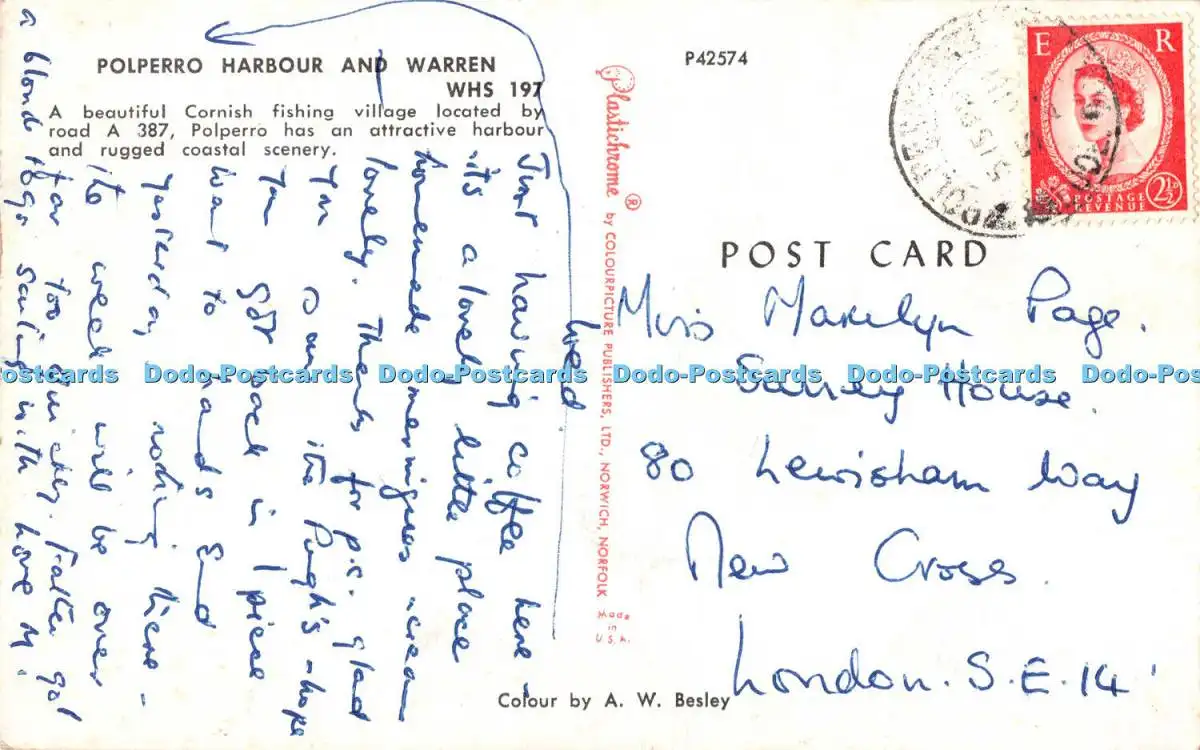 POLPERRO HARBOUR AND WARREN
WHS 197
A beautiful Cornish fishing village located by
road A 387, Polperro has an attractive harbour
and rugged coastal scenery.
P42574
E R
POSTAGE
REVENUE
2½D
POST CARD
Plastichrome ® by COLOURPICTURE PUBLISHERS, LTD., NORWICH, NORFOLK
Made
in
U.S.A.
Wed
Just having coffee here -
its a lovely little place
homemade meringues & cream
lovely. Thanks for p.c. glad
you saw the Pugh's - hope
you got back in 1 piece
went to Lands End
yesterday, nothing there -
the week will be over
far too quickly. Father got
a blond to go sailing with love M.
Miss Marelyn Page.
Surrey House.
80 Lewisham Way
New Cross.
London. S.E.14
Colour by A. W. Besley
Dodo-Postcards Dodo-Postcards Dodo-Postcards Dodo-Postcards Dodo-Postcards Dodo-Postcards